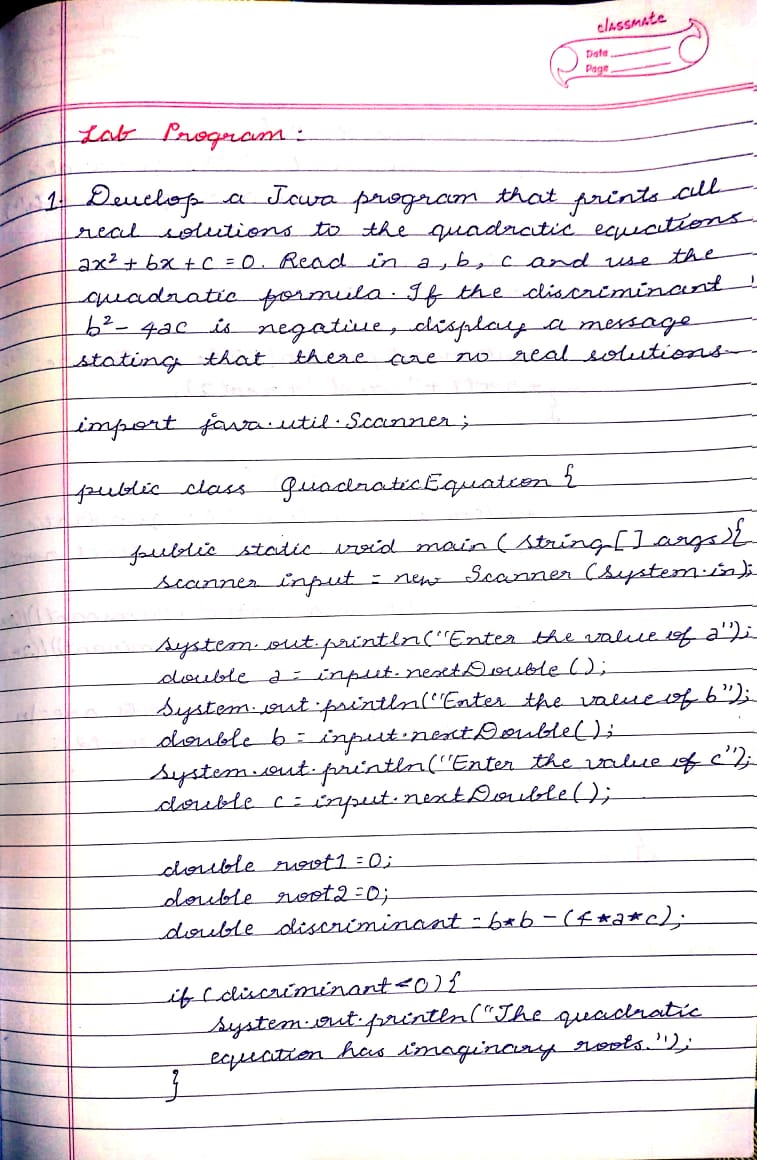 classmate
Date
Page
Lab Program :
1. Develop a Java program that prints all
real solutions to the quadratic equations
ax² + bx + c = 0. Read in a, b, c and use the
quadratic formula. If the discriminant
b² - 4ac is negative, display a message
stating that there are no real solutions
import java.util.Scanner;
public class QuadraticEquation {
public static void main (String[] args){
Scanner input = new Scanner (System.in);
System.out.println("Enter the value of a");
double a = input.nextDouble ();
System.out.println("Enter the value of b");
double b = input.nextDouble();
System.out.println("Enter the value of c");
double c = input.nextDouble();
double root1 = 0;
double root2 = 0;
double discriminant = b*b - (4*a*c);
if (discriminant < 0) {
System.out.println("The quadratic
equation has imaginary roots.");
}